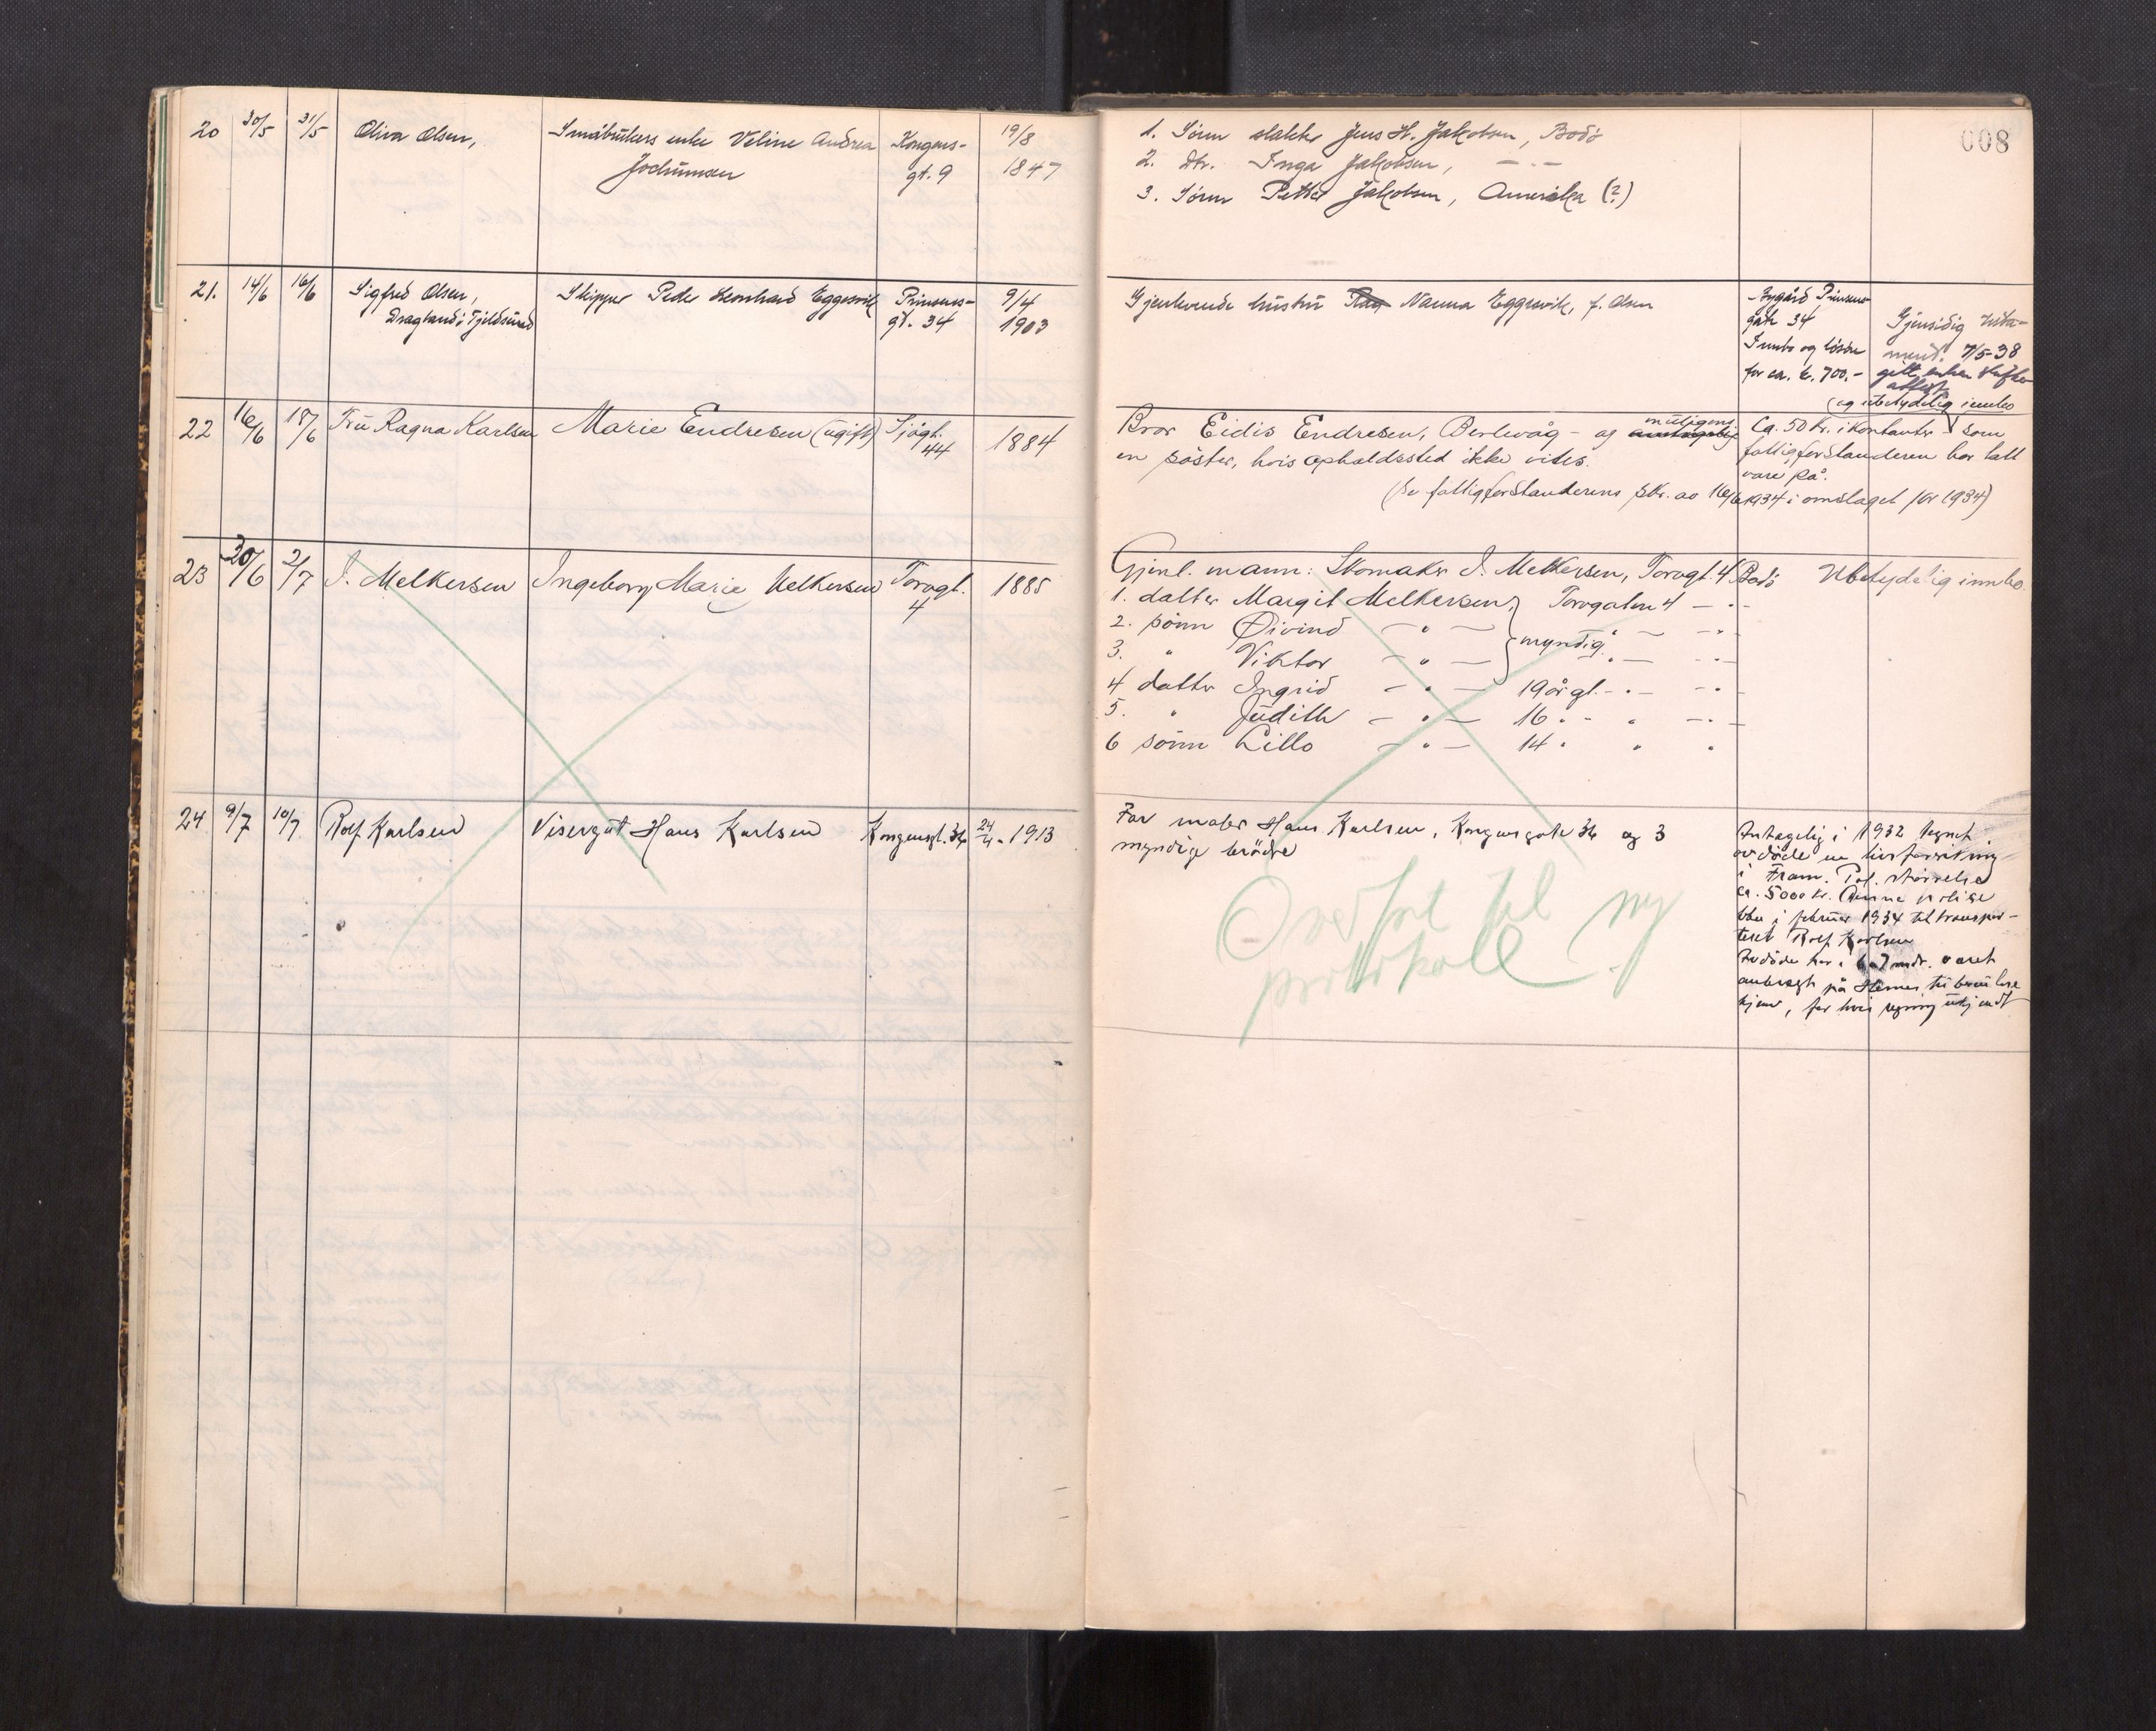 008
20 30/5 31/5 Oliva Olsen, Småbrukers enke Veline Andrea Kongens- 19/8
Jochumsen gt. 9 1847
1. Sønn slakter Jens H. Jakobsen, Bodø
2. Dtr. Inga Jakobsen, — " —
3. Sønn Petter Jakobsen, Amerika (?)
21. 14/6 16/6 Sigfred Olsen, Skipper Peder Leonhard Eggesvik Prinsens- 9/4
Dragland i Tjeldsund gt. 34 1903
Gjenlevende hustru Nanna Eggesvik, f. Olsen
Bygård Prinsens
gate 34
Innbo og løsøre
for ca. kr. 700,-
Gjensidig testa-
ment. 7/5-38
gitt enken skifte
attest
22 16/6 18/6 Frü Ragna Karlsen Marie Endresen (ugift) Sjøgt. 1884
44
Bror Eidis Endresen, Berlevåg - og muligens
en søster, hvis opholdssted ikke vites.
(Se fattigforstanderens skr. av 16/6 1934 i omslaget for 1934)
(og ubetydelig innbo
Ca. 50 kr. i kontanter som
fattigforstanderen har tatt
vare på.
23 30/6 2/7 J. Melkersen Ingeborg Marie Melkersen Torvgt. 1885
4
Gjenl. mann: Skomaker J. Melkersen, Torvgt. 4 Bodø Ubetydelig innbo.
1. datter Margit Melkersen, Torvgaten 4 — " —
2. sønn Øivind — " — myndig. " — — " —
3. " Viktor — " — — " — — " —
4 datter Ingrid — " — 19 år gl. — " — — " —
5. " Judith — " — 16 " - " — " —
6 sønn Lillo — " — 14 " " "
24 9/7 10/7 Rolf Karlsen Visergut Hans Karlsen Kongensgt. 36 24/4 - 1913
Far maler Hans Karlsen, Kongensgate 36 og 3
myndige brødre
Antagelig i 1932 tegnet
avdøde en livsforsikring
i Fram. Pol. størrelse
ca. 5000 kr. Denne polise
blev i februar 1934 transpor-
tert Rolf Karlsen
Avdøde har i 6 a 7 mdr. været
anbragt på
hjem, for hvis regning
Overført til ny
protokoll